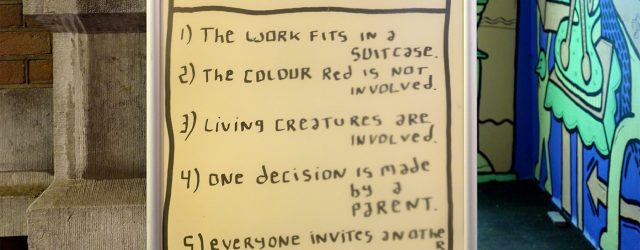 1) THE WORK FITS IN a
SUITCASE.
2) THE COLOUR Red IS NOT
INVOLVED.
3) LIVING CREATURES ARE
INVOLVED.
4) ONE DECISION IS MADE
by a
PARENT.
5) EVERYONE INVITES ANOTHE
R